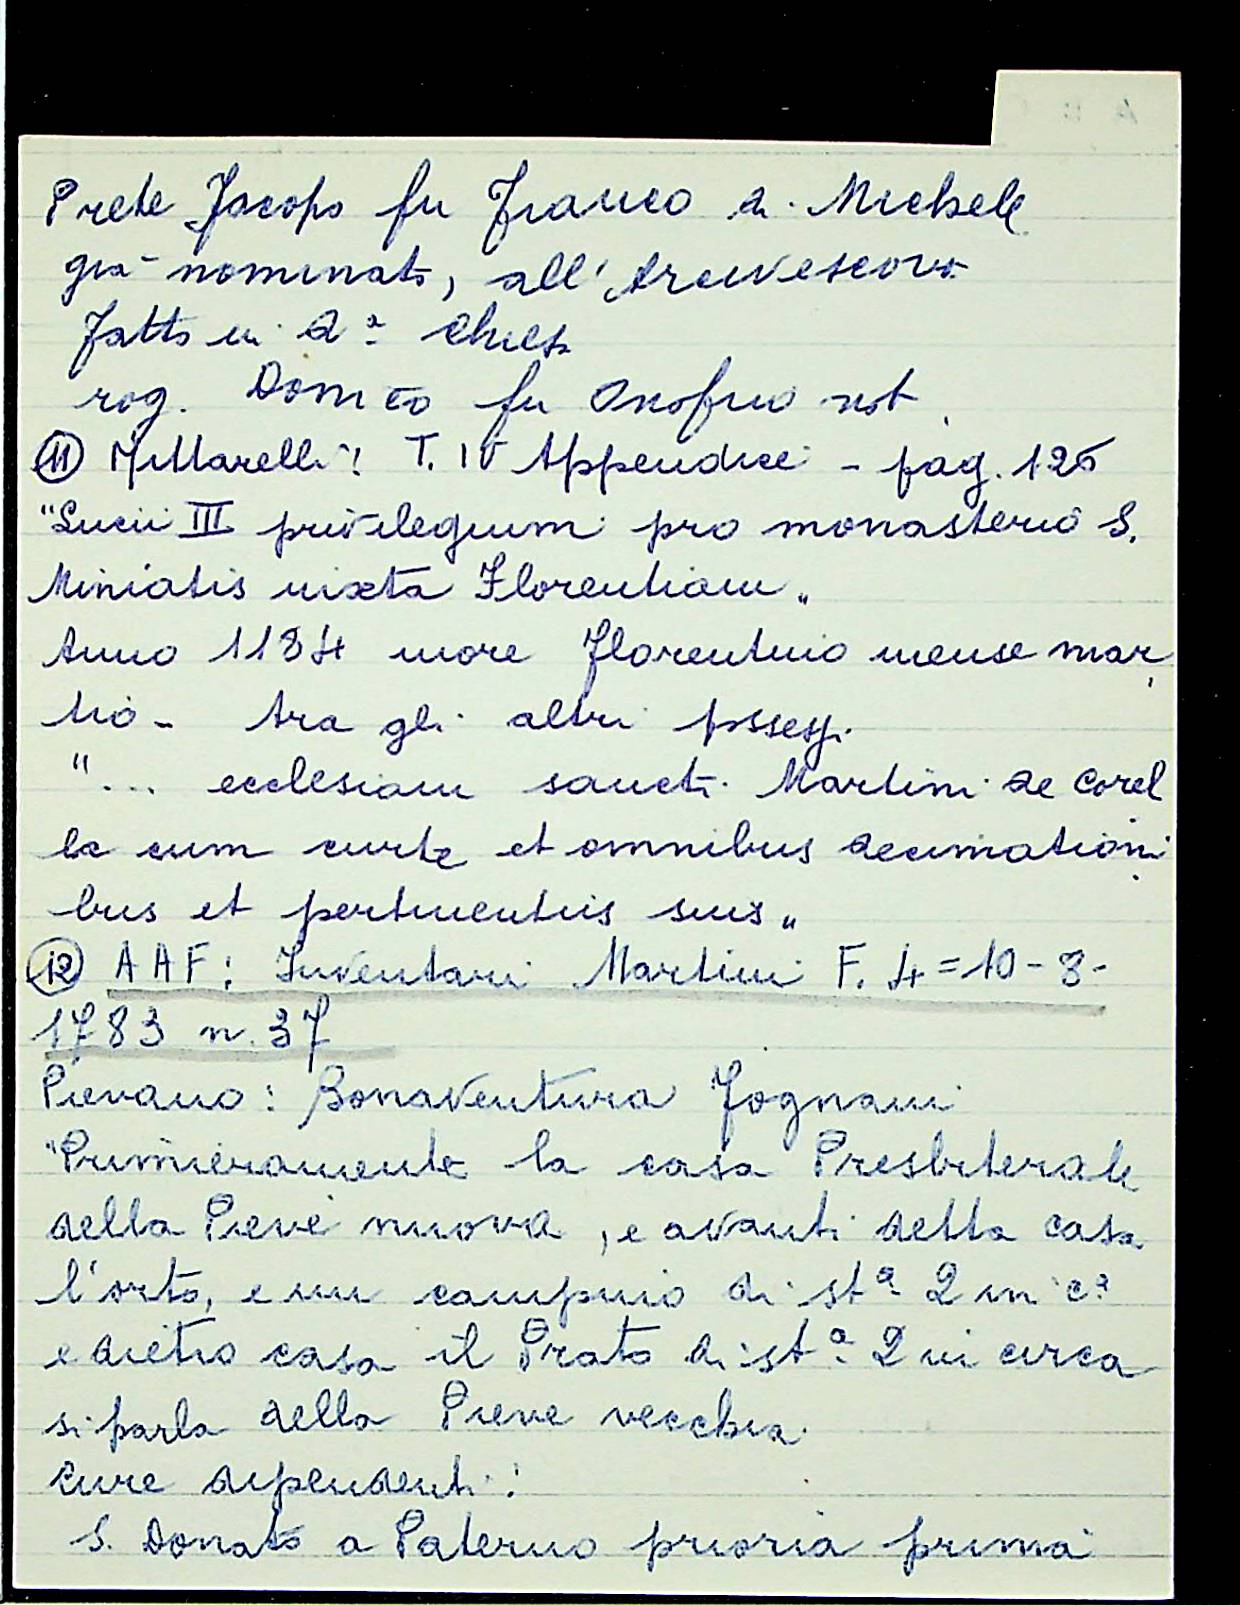 Prete Jacopo fu Franco di Michele
già nominato, all'Arcivescovo
fatto in da chiesa
rog. Dom co fu Onofrio not.
11 Mittarelli: T. IV Appendice - pag. 126
"Lucii III privilegium pro monasterio S.
Miniatis iuxta Florentiam"
Anno 1184 more Florentino mense mar
tio - tra gli altri possess.
"... ecclesiam sancti Martini de Corel
la cum curte et omnibus decimationi
bus et pertinentiis suis"
12 AAF: Inventari Martini F. 4 = 10-8-
1783 n. 37
Pievano: Bonaventura Fognani
"Primieramente la casa Presbiterale
della Pieve nuova, e avanti detta casa
l'orto, e un campino di sta 2 in ca
e dietro casa il Prato di sta 2 in circa
si parla della Pieve vecchia
Cure dipendenti:
S. Donato a Paterno prioria prima